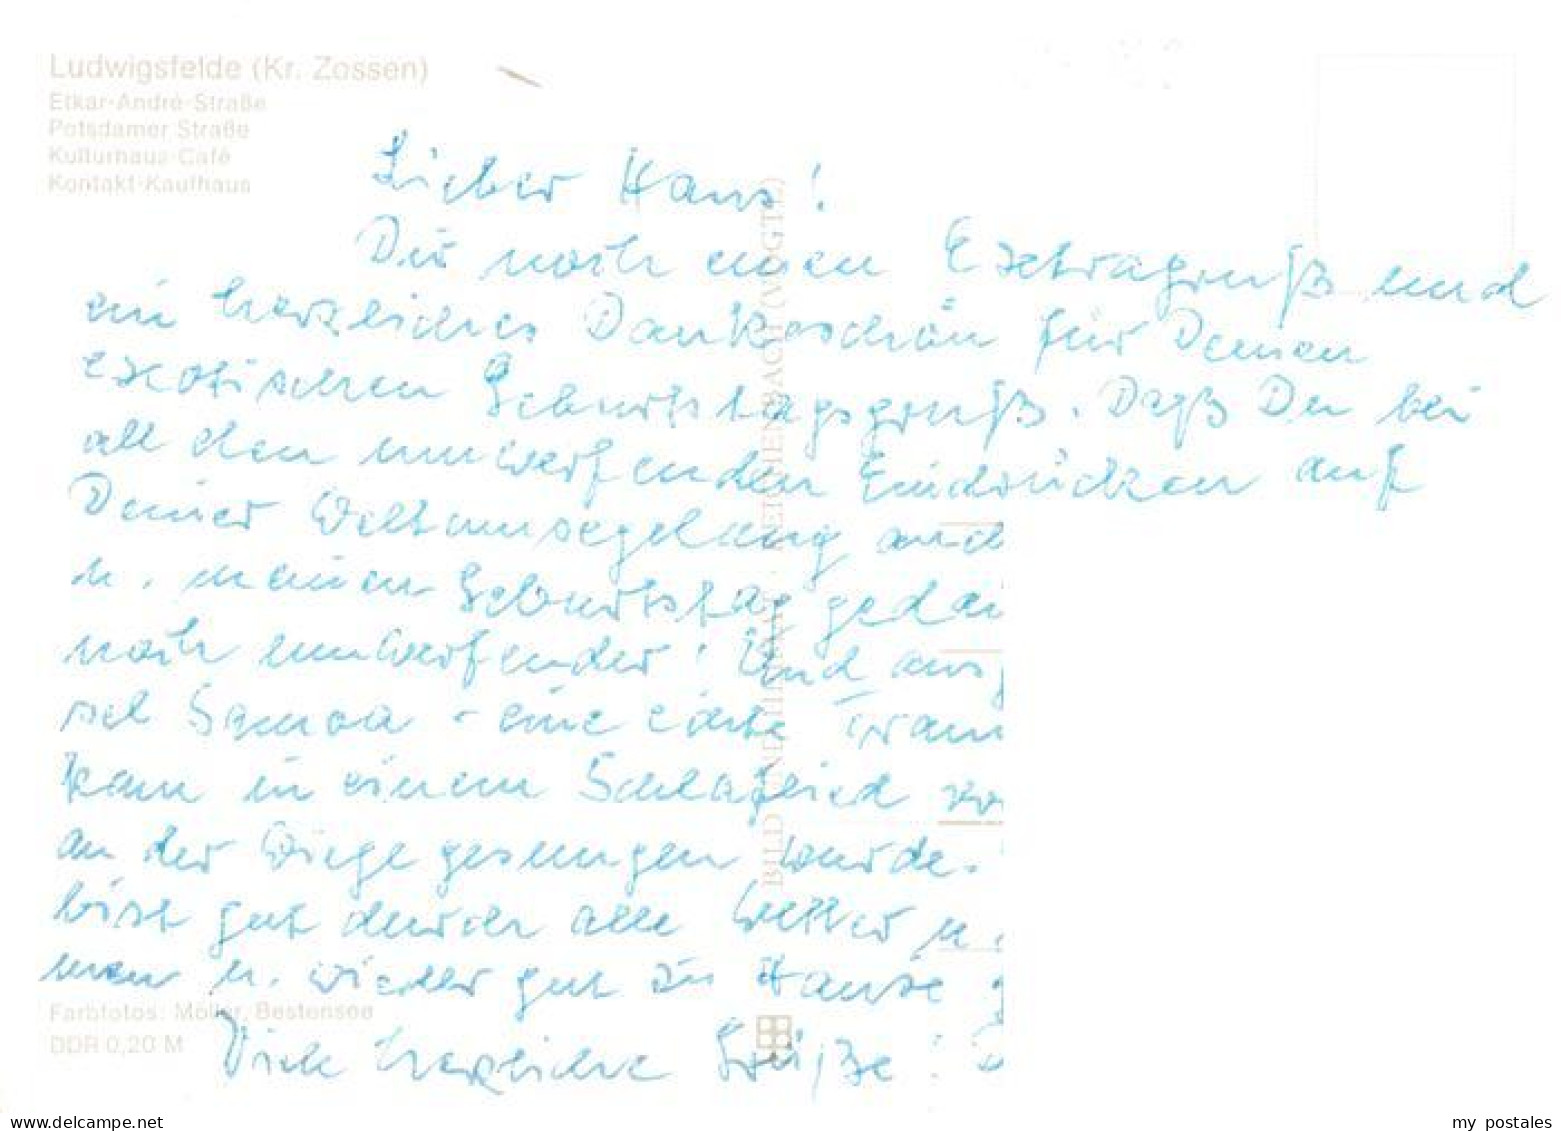 Ludwigsfelde (Kr. Zossen)
Etkar-André-Straße
Potsdamer Straße
Kulturhaus-Café
Kontakt-Kaufhaus
Lieber Hans!
Dir noch einen Extragruß und
ein herzliches Dankeschön für Deinen
exotischen Geburtstagsgruß. Daß Du bei
all den umwerfenden Eindrücken auf
Deiner Weltumsegelung auch
u. meinen Geburtstag gedac
noch umwerfender! Und aus
sel Samoa - eine echte Trau
kam in einem Schlaflied vo
an der Wiege gesungen wurde.
bist gut durch alle Wetter u.
men u. wieder gut zu Hause g
Viele herzliche Grüße!
BILD UND HEIMAT REICHENBACH (VOGTL)
Farbfotos: Möller, Bestensee
DDR 0,20 M
delcampe.net
my_postales